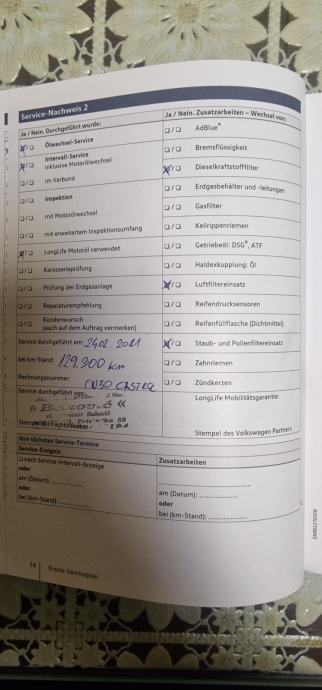 Service-Nachweis 2
Ja / Nein. Durchgeführt wurde:
x/☐ Ölwechsel-Service
x/☐ Intervall-Service
inklusive Motorölwechsel
☐/☐ im Verbund
☐/☐ Inspektion
☐/☐ mit Motorölwechsel
☐/☐ mit erweitertem Inspektionsumfang
x/☐ LongLife Motoröl verwendet
☐/☐ Karosserieprüfung
☐/☐ Prüfung der Erdgasanlage
☐/☐ Reparaturempfehlung
☐/☐ Kundenwunsch
(auch auf dem Auftrag vermerken)
Service durchgeführt am: 24.02.2021
bei km-Stand: 129.300 km
Rechnungsnummer: CASTROL
Service durchgeführt von:
Ja / Nein. Zusatzarbeiten – Wechsel von:
☐/☐ AdBlue®
☐/☐ Bremsflüssigkeit
x/☐ Dieselkraftstofffilter
☐/☐ Erdgasbehälter und -leitungen
☐/☐ Gasfilter
☐/☐ Keilrippenriemen
☐/☐ Getriebeöl: DSG®, ATF
☐/☐ Haldexkupplung: Öl
x/☐ Luftfiltereinsatz
☐/☐ Reifendrucksensoren
☐/☐ Reifenfüllflasche (Dichtmittel)
x/☐ Staub- und Pollenfiltereinsatz
☐/☐ Zahnriemen
☐/☐ Zündkerzen
LongLife Mobilitätsgarantie:
Stempel des Volkswagen Partners
Ihre nächsten Service-Termine
Service-Ereignis
☐ nach Service-Intervall-Anzeige
oder
am (Datum):
oder
bei (km-Stand):
Zusatzarbeiten
am (Datum):
oder
bei (km-Stand):
36
Ersatz-Serviceplan